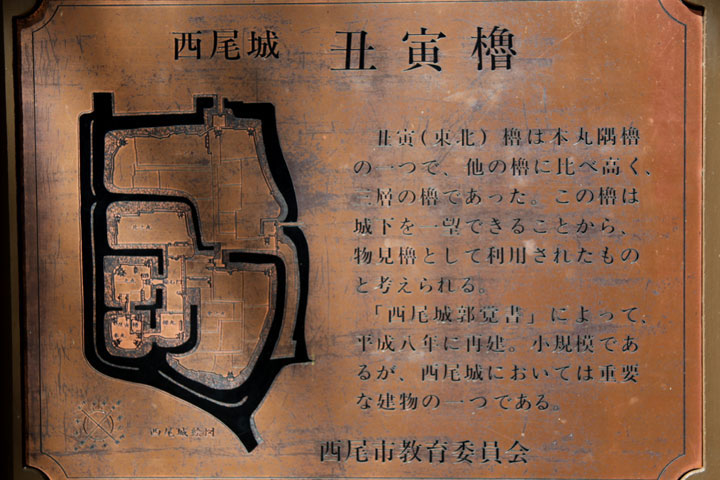 西尾城 丑寅櫓
丑寅(東北)櫓は本丸隅櫓
の一つで、他の櫓に比べ高く、
三層の櫓であった。この櫓は
城下を一望できることから、
物見櫓として利用されたもの
と考えられる。
「西尾城郭覚書」によって、
平成八年に再建。小規模であ
るが、西尾城においては重要
な建物の一つである。
西尾城絵図
西尾市教育委員会